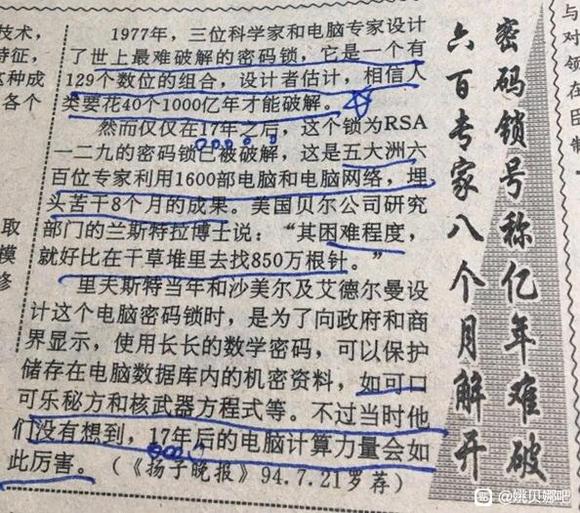 密码锁号称亿年难破
六百专家八个月解开
1977年，三位科学家和电脑专家设计
了世上最难破解的密码锁，它是一个有
129个数位的组合，设计者估计，相信人
类要花40个1000亿年才能破解。
然而仅仅在17年之后，这个锁为RSA
一二九的密码锁已被破解，这是五大洲六
百位专家利用1600部电脑和电脑网络，埋
头苦干8个月的成果。美国贝尔公司研究
部门的兰斯特拉博士说：“其困难程度，
就好比在干草堆里去找850万根针。”
里夫斯特当年和沙美尔及艾德尔曼设
计这个电脑密码锁时，是为了向政府和商
界显示，使用长长的数学密码，可以保护
储存在电脑数据库内的机密资料，如可口
可乐秘方和核武器方程式等。不过当时他
们没有想到，17年后的电脑计算力量会如
此厉害。（《扬子晚报》94.7.21罗荐）
技术，
特征，
这种成
各个
取
模
修
与
对
领
在
日
制
@姚贝娜吧